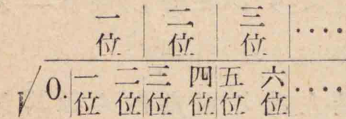 一位 二位 三位 ····
√0.一位 二位 三位 四位 五位 六位 ····